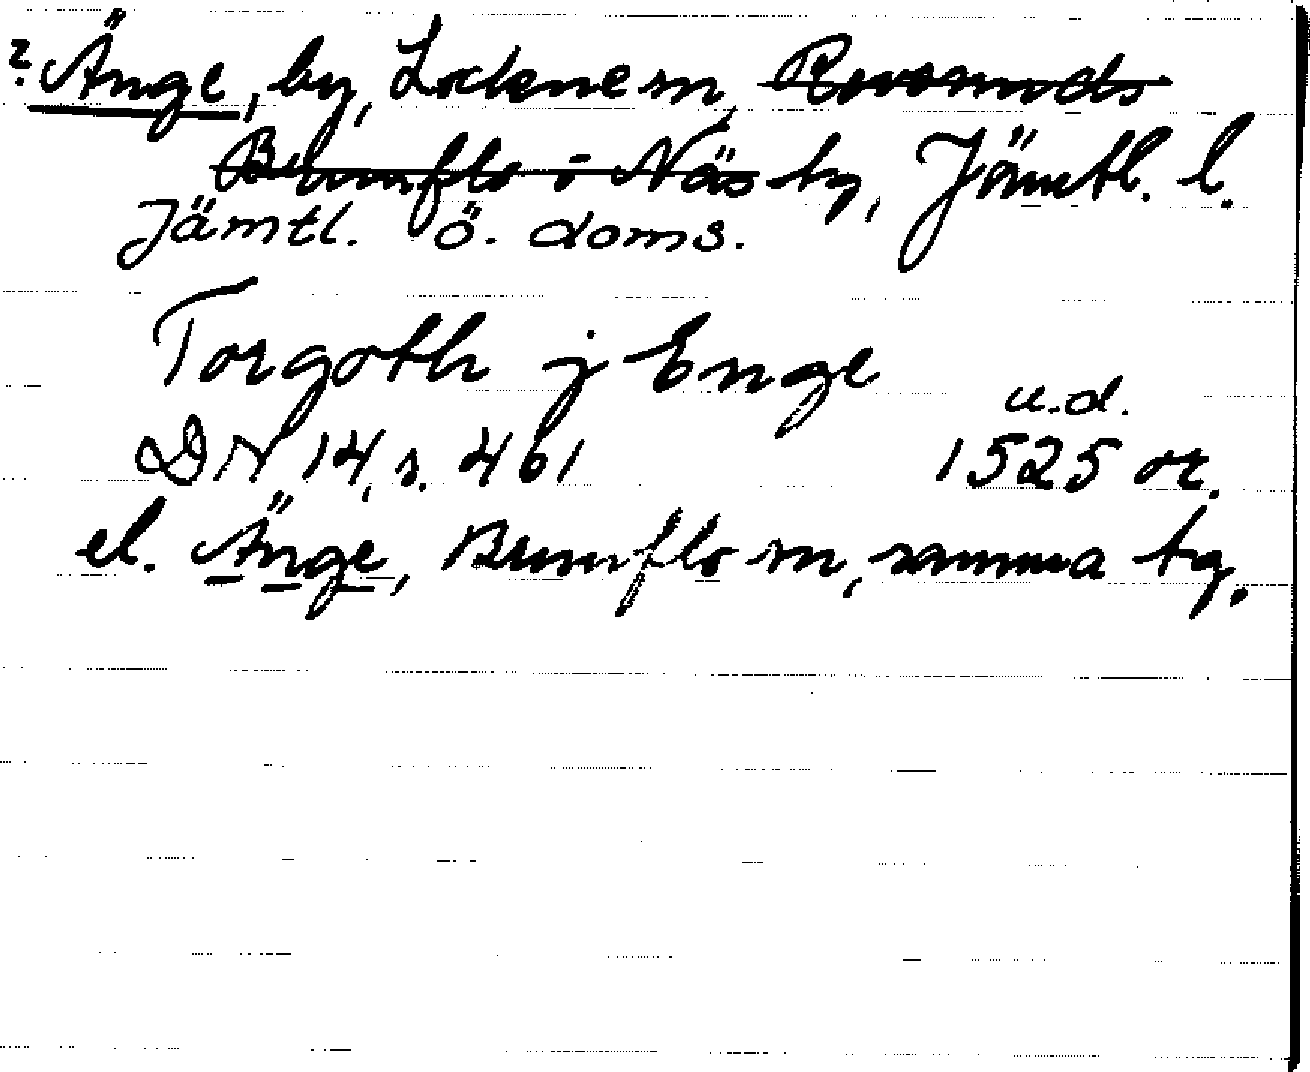 ? Änge, by, Lockne sn, Revsunds
Brunflo o Näs tg, Jämtl. l.
Jämtl. ö. doms.
Torgoth j Enge
u.d.
DN 14, s. 461 1525 or.
el. Änge, Brunflo sn, samma tg.